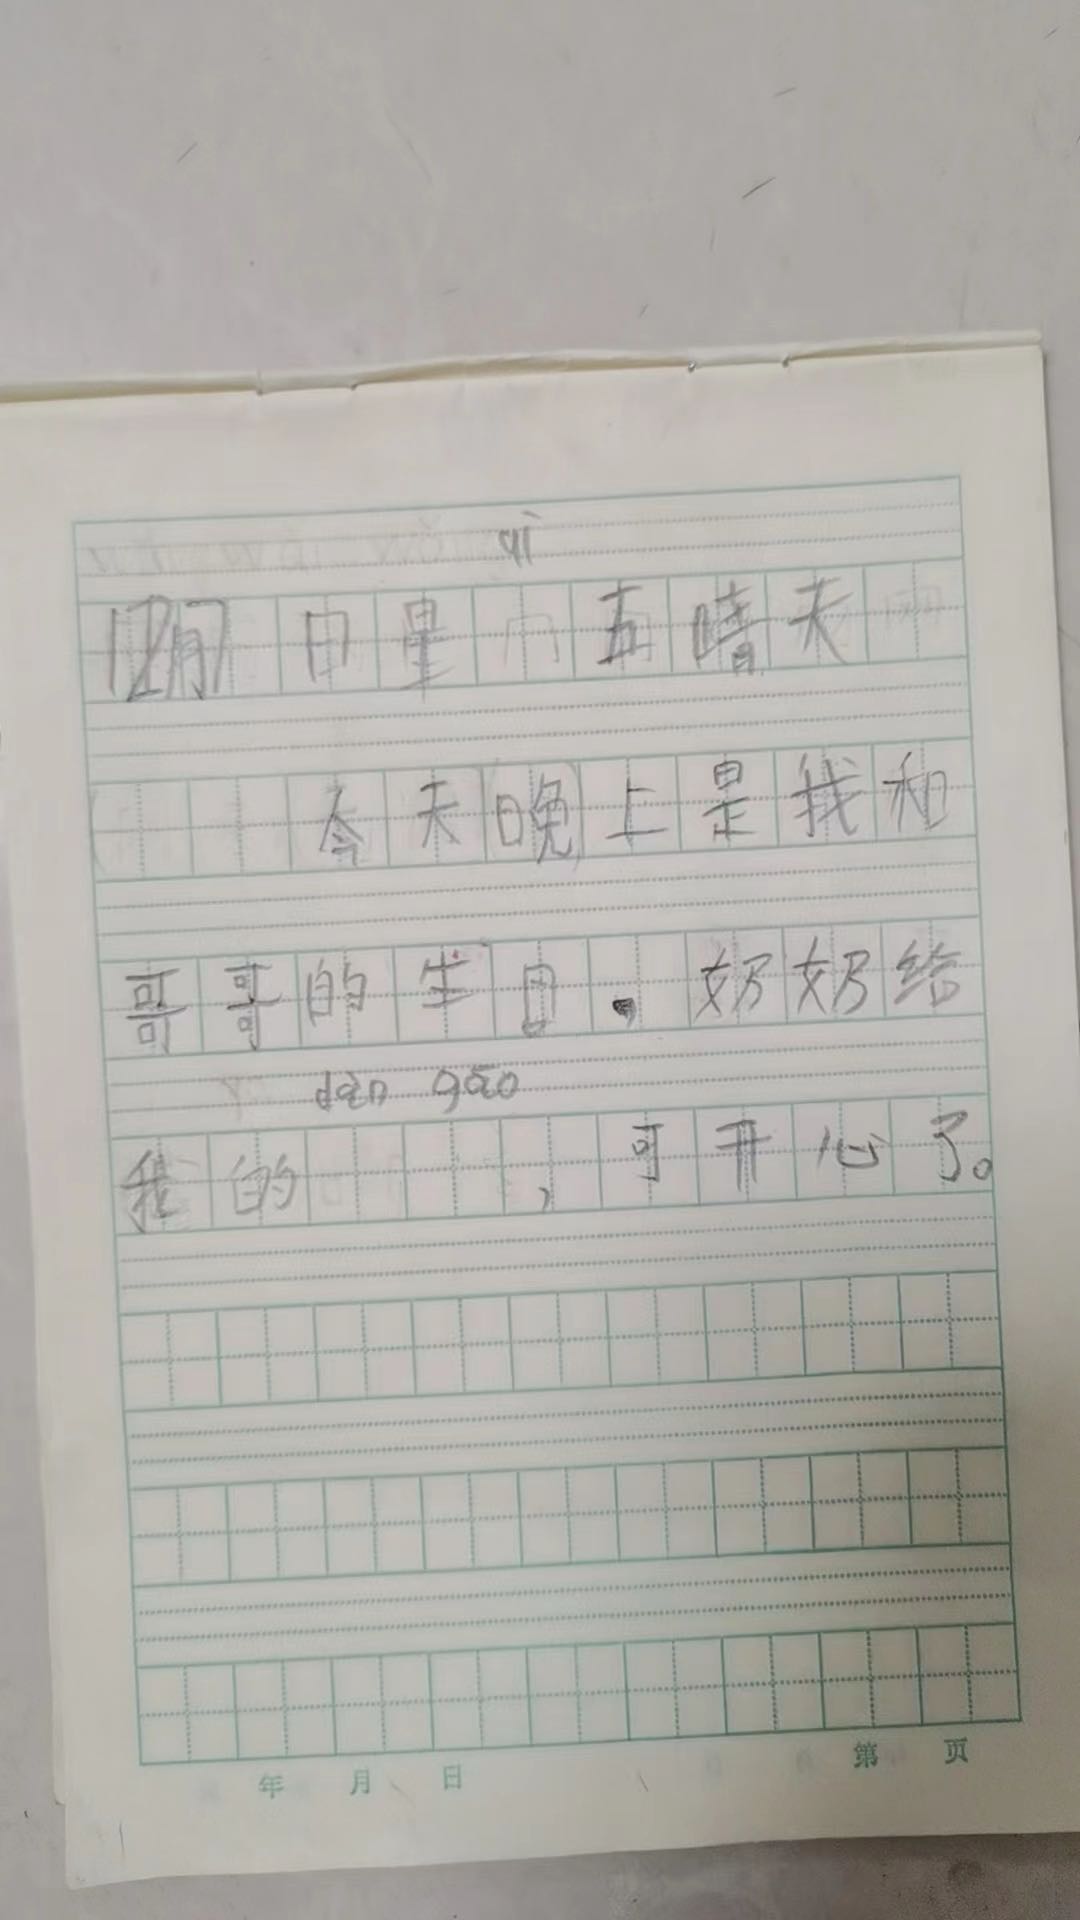 qī
12月 日星 五晴天
今天晚上是我和
哥哥的生日，奶奶给
dàn gāo
我的 ，可开心了。
年 月 日 第 页